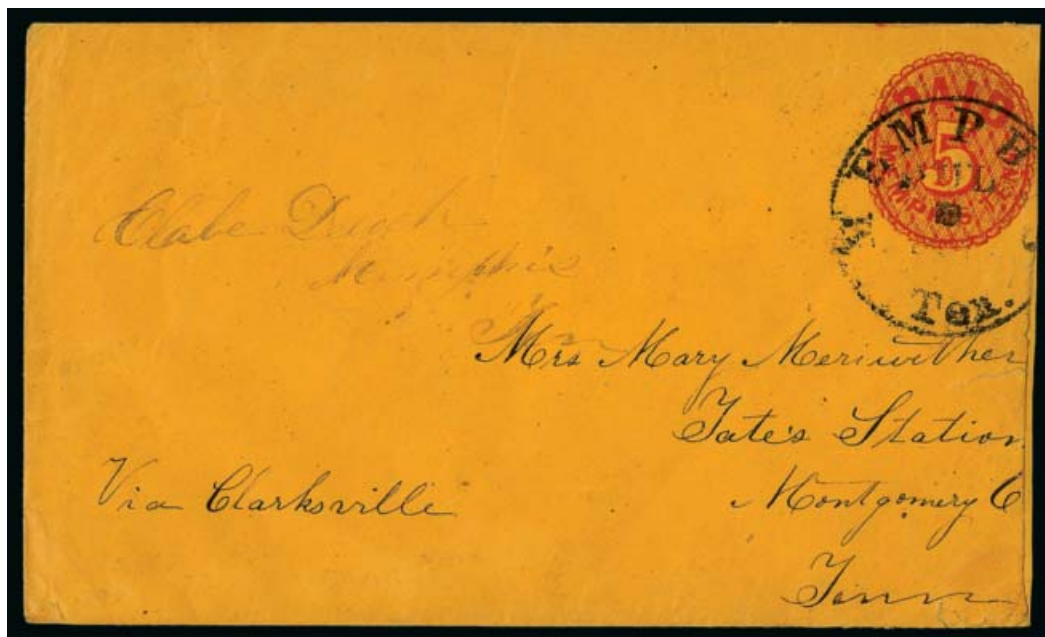 PAID
5
MEMPHIS TEN
MEMPH
JUL
Ten.
Memphis
Mrs Mary Meriwether
Tate's Station
Montgomery C
Tenn
Via Clarksville